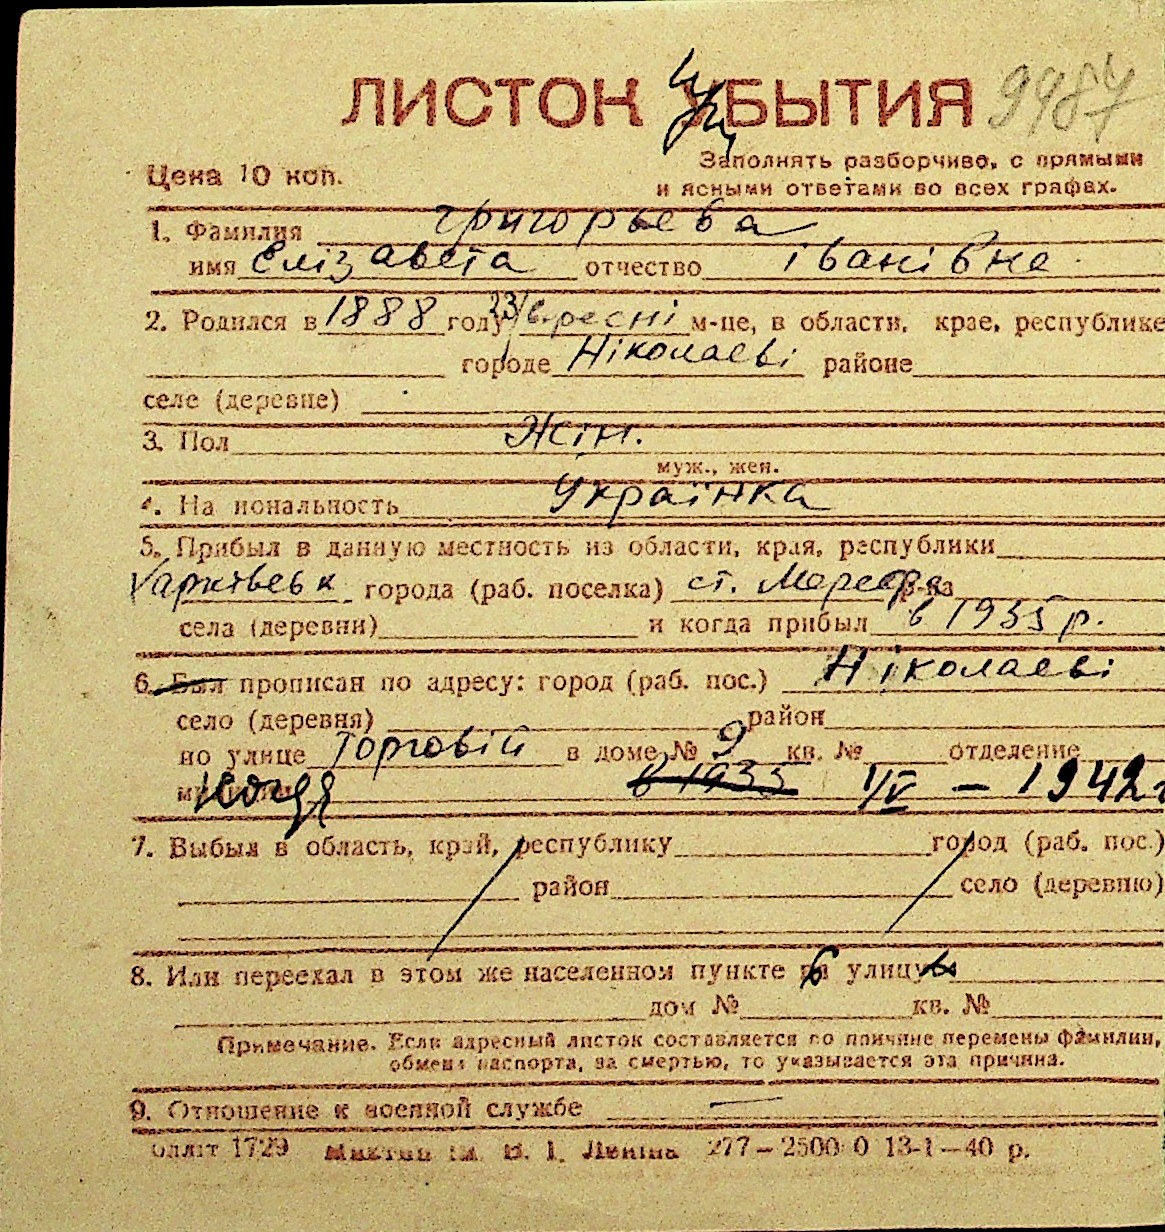 ЛИСТОК УБЫТИЯ 9987
Цена 10 коп.
Заполнять разборчиво, с прямыми
и ясными ответами во всех графах.
1. Фамилия Григорьева
имя Єлізавета отчество Іванівна
2. Родился в 1888 году 23/ вересні м-це, в области, крае, республике
городе Ніколаєві районе
селе (деревне)
3. Пол Жін.
муж., жен.
4. Национальность Українка
5. Прибыл в данную местность из области, края, республики
Харківськ города (раб. поселка) ст. р-на
села (деревни) и когда прибыл в 1935 р.
6. Был прописан по адресу: город (раб. пос.) Ніколаєві
село (деревня) район
по улице Торговій в доме № 9 кв. № отделение
милиции в 1935 1/V – 1942 г
7. Выбыл в область, край, республику город (раб. пос.)
район село (деревню)
8. Или переехал в этом же населенном пункте на улицу
дом № кв. №
Примечание. Если адресный листок составляется по причине перемены фамилии,
обмена паспорта, за смертью, то указывается эта причина.
9. Отношение к военной службе —
Облліт 1729 ім. В. І. Леніна 277—2500 0 13-1—40 р.